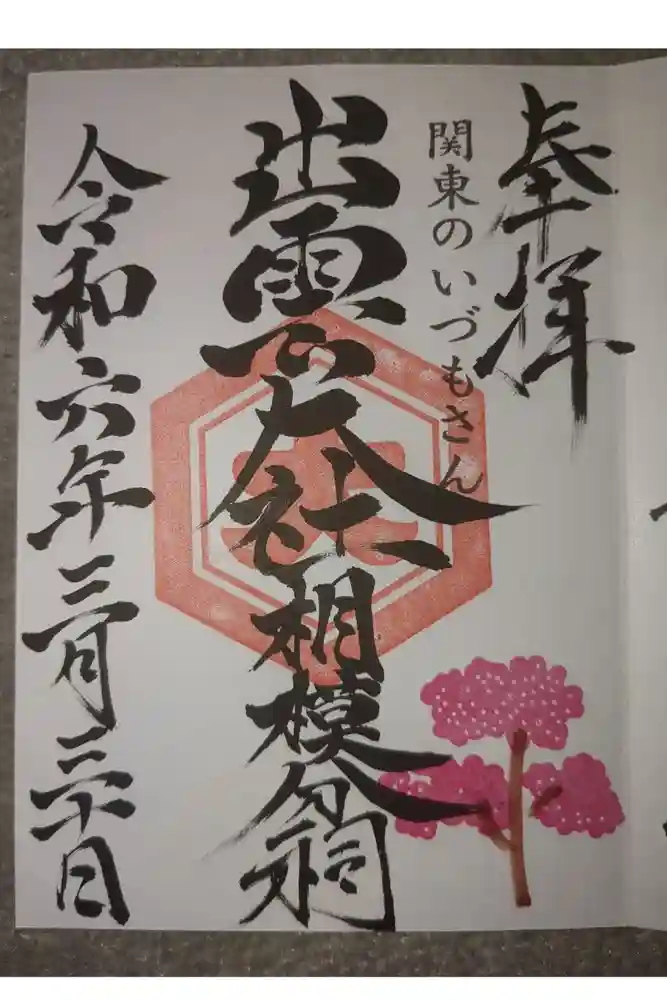 奉拝
関東のいづもさん
出雲大社相模分祠
令和六年三月三十日